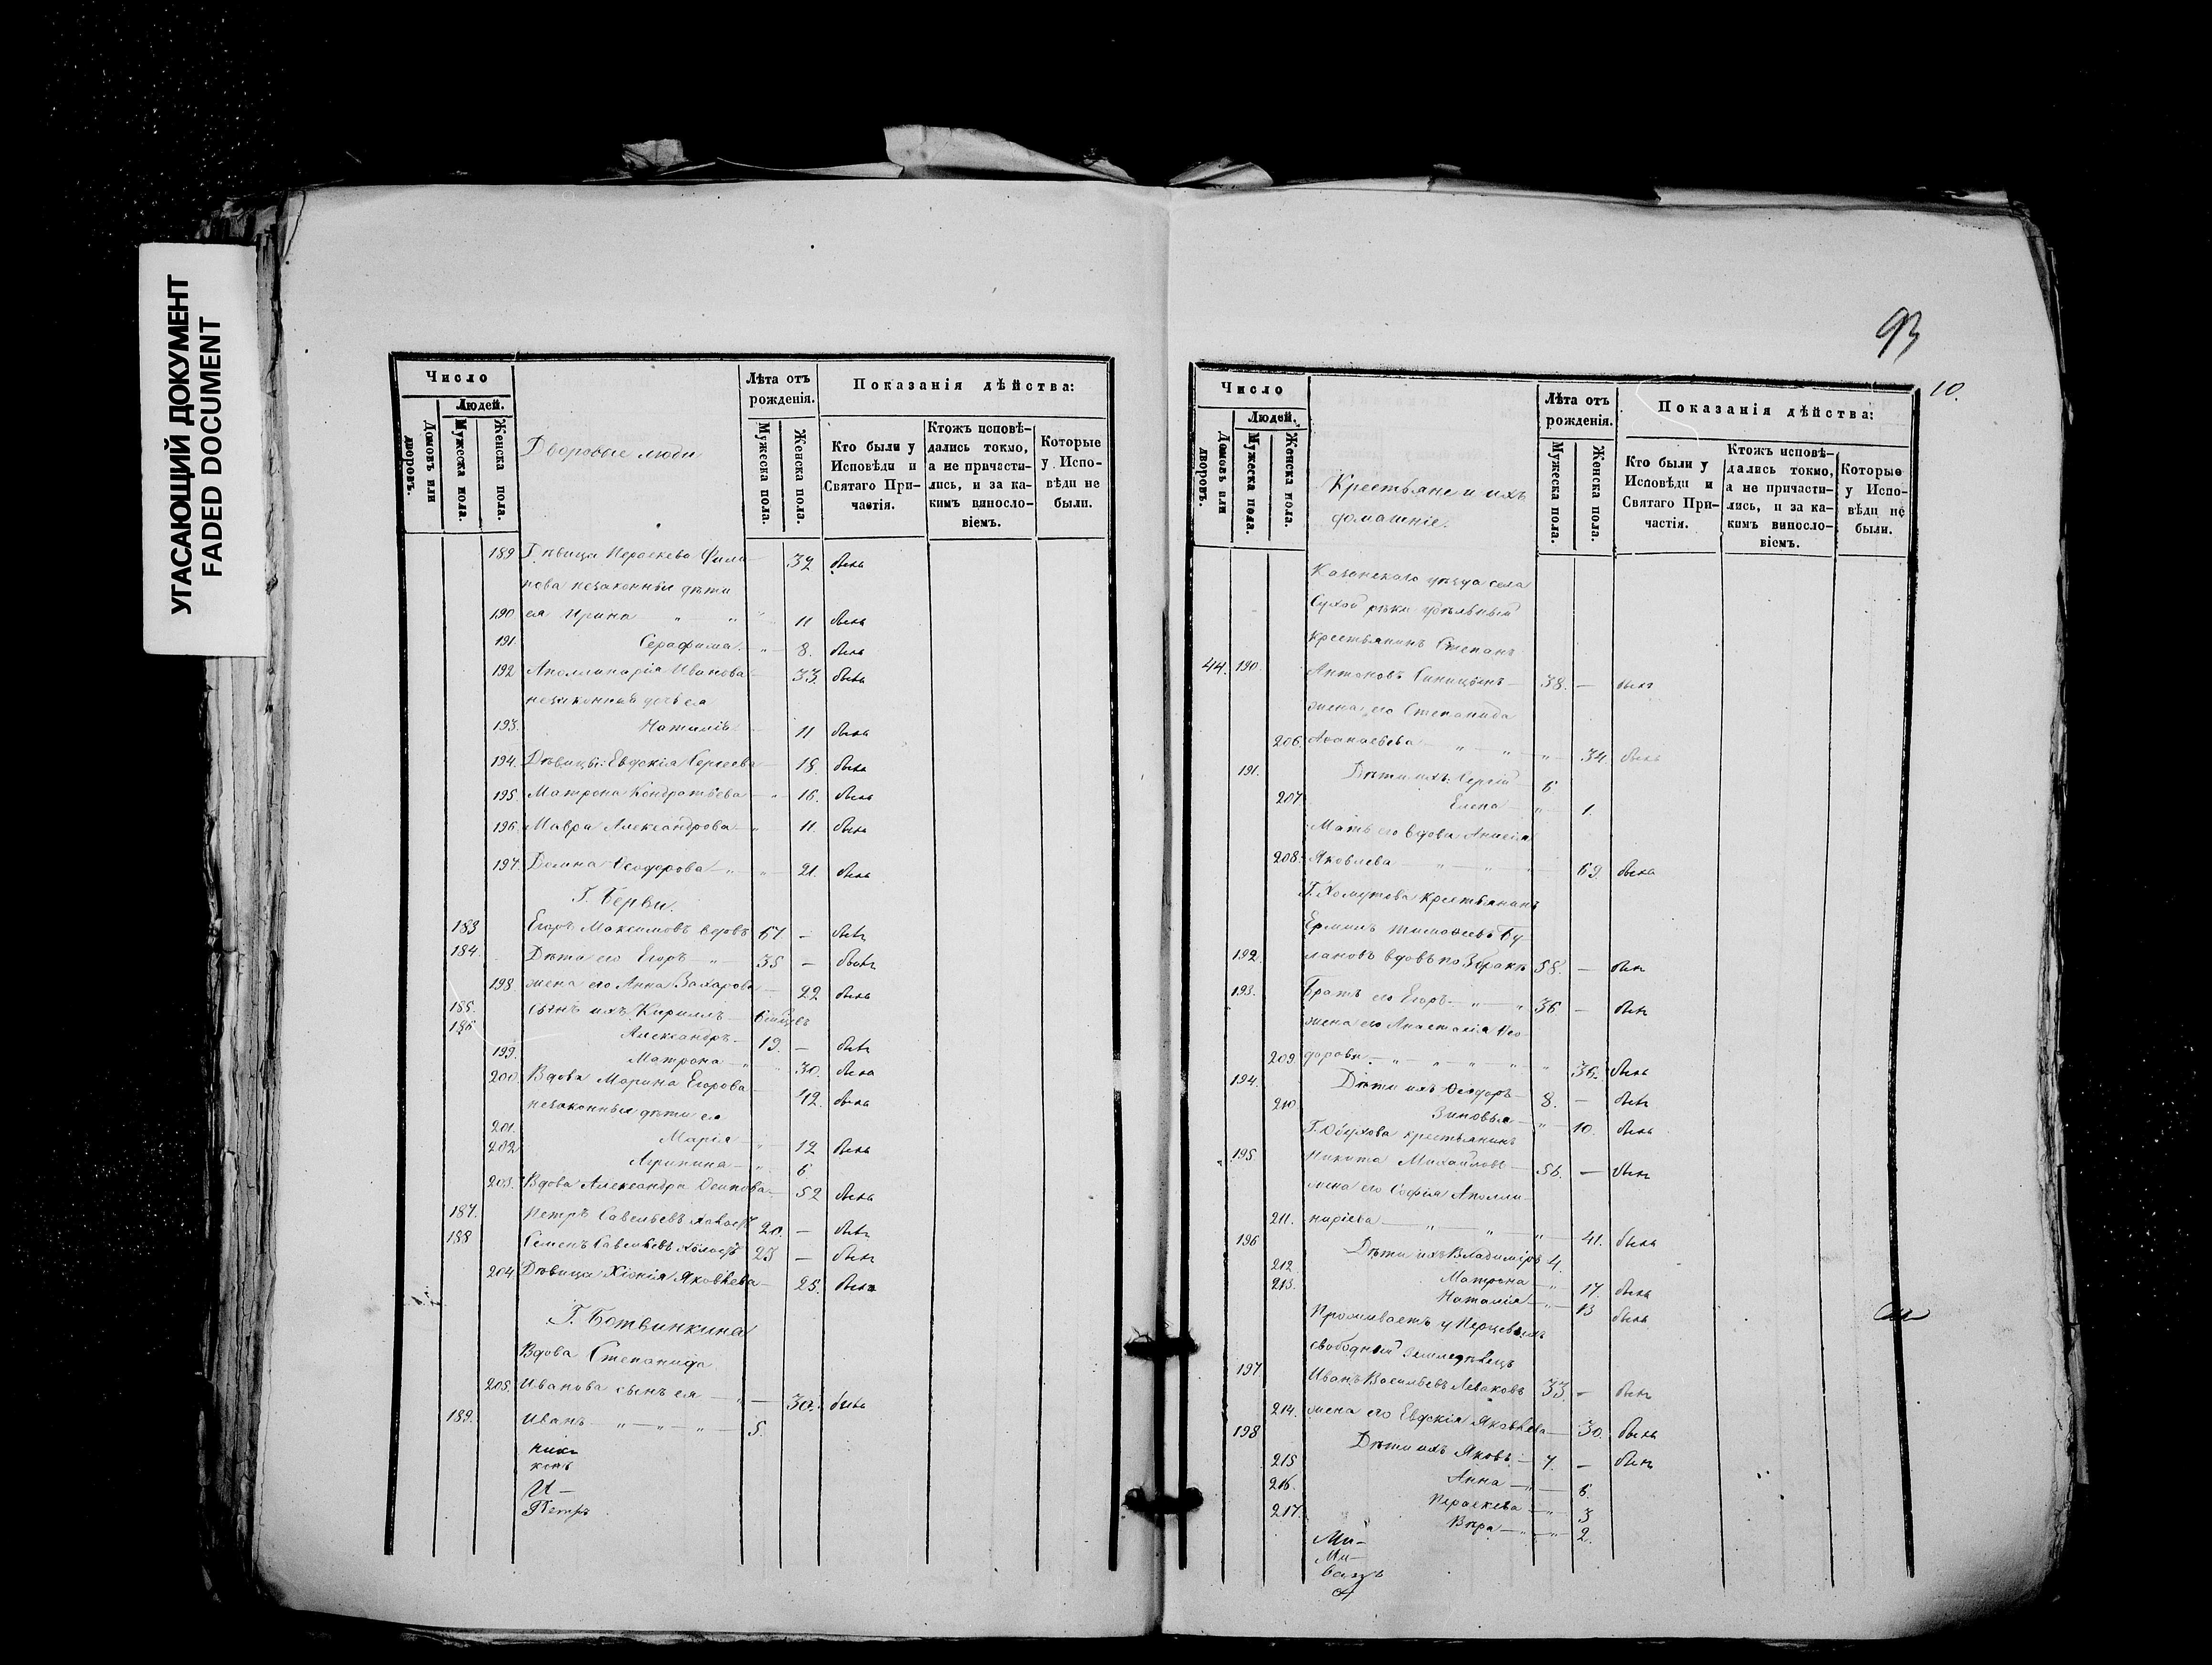 УГАСАЮЩИЙ ДОКУМЕНТ
FADED DOCUMENT
Число
Людей.
Домовъ или дворовъ.
Мужеска пола.
Женска пола.
Дворовые люди
Лѣта отъ рожденія.
Мужеска пола.
Женска пола.
Показанія дѣйства:
Кто были у Исповѣди и Святаго Причастія.
Ктожъ исповѣдались токмо, а не причастились, и за какимъ винословіемъ.
Которые у Исповѣди не были.
189 Дѣвица Параскева Фили- 32 была
пова незаконныя дѣти
190 ея Ирина " " 11 была
191 Серафима " 8. была
192 Аполлинарія Иванова 33. была
незаконная дочь ея
193. Наталія 11 была
194. Дѣвицы: Евдокія Сергеева 18. была
195. Матрона Кондратьева " 16. была
196 Мавра Александрова " 11. была
197. Домна Ѳеодорова " " 21. была
Г. Берви.
183 Егоръ Максимовъ вдовъ 67 — былъ
184. Дѣти его Егоръ " 35 — былъ
198. жена его Анна Захарова 22 была
185. сынъ ихъ Кириллъ
186 Александръ 19. — былъ
199. Матрона " 30. была
200. Вдова Марина Егорова 42. была
незаконныя дѣти ея
201. Марія " 12 была
202 Агрипина " 6
203. Вдова Александра Осипова 52 была
187. Петръ Савельевъ холостъ 20. — былъ
188 Семенъ Савельевъ холостъ 23 — былъ
204 Дѣвица Хіонія Яковлева 25. была
Г. Ботвинкина
Вдова Степанида
205. Иванова сынъ ея " — 30. была
189. Иванъ " " " 5.
И —
Петръ
93
10.
Число
Людей.
Домовъ или дворовъ.
Мужеска пола.
Женска пола.
Крестьяне и ихъ
домашніе.
Лѣта отъ рожденія.
Мужеска пола.
Женска пола.
Показанія дѣйства:
Кто были у Исповѣди и Святаго Причастія.
Ктожъ исповѣдались токмо, а не причастились, и за какимъ винословіемъ.
Которые у Исповѣди не были.
Казанскаго уѣзда села
Сухой рѣки удѣльный
крестьянинъ Степанъ
44. 190. Антоновъ Синицынъ 38. — былъ
жена его Степанида
206. " " " 34. была
191. Дѣти ихъ: Сергій 6
207. Елена " 1.
Мать его вдова Анисія
208. Яковлева " " " 69. была
Г. Хомутова крестьянинъ
192. лановъ вдовъ по 3 бракѣ 58. — былъ
193. Братъ его Егоръ " " 36. — былъ
жена его Анастасія Ѳео-
209. дорова " " " " " 36. была
194. Дѣти ихъ Ѳеодоръ 8. — былъ
210. Зиновья " 10. была
Г. Обухова крестьянинъ
195. Никита Михайловъ 56. — былъ
жена его Софія Аполли-
211. наріева " " " 41. была
196 Дѣти ихъ Владиміръ 4.
212. Матрона " 17. была
213. Наталія " 13 была
Проживаетъ у Перцевыхъ
свободный земледѣлецъ
197 Иванъ Васильевъ 33. — былъ
214. жена его Евдокія Яковлева 30. была
198 Дѣти ихъ Яковъ 7. — былъ
215 Анна " 6.
216. Параскева " 3
217. Вѣра " " 2.
Ми-
Ми-